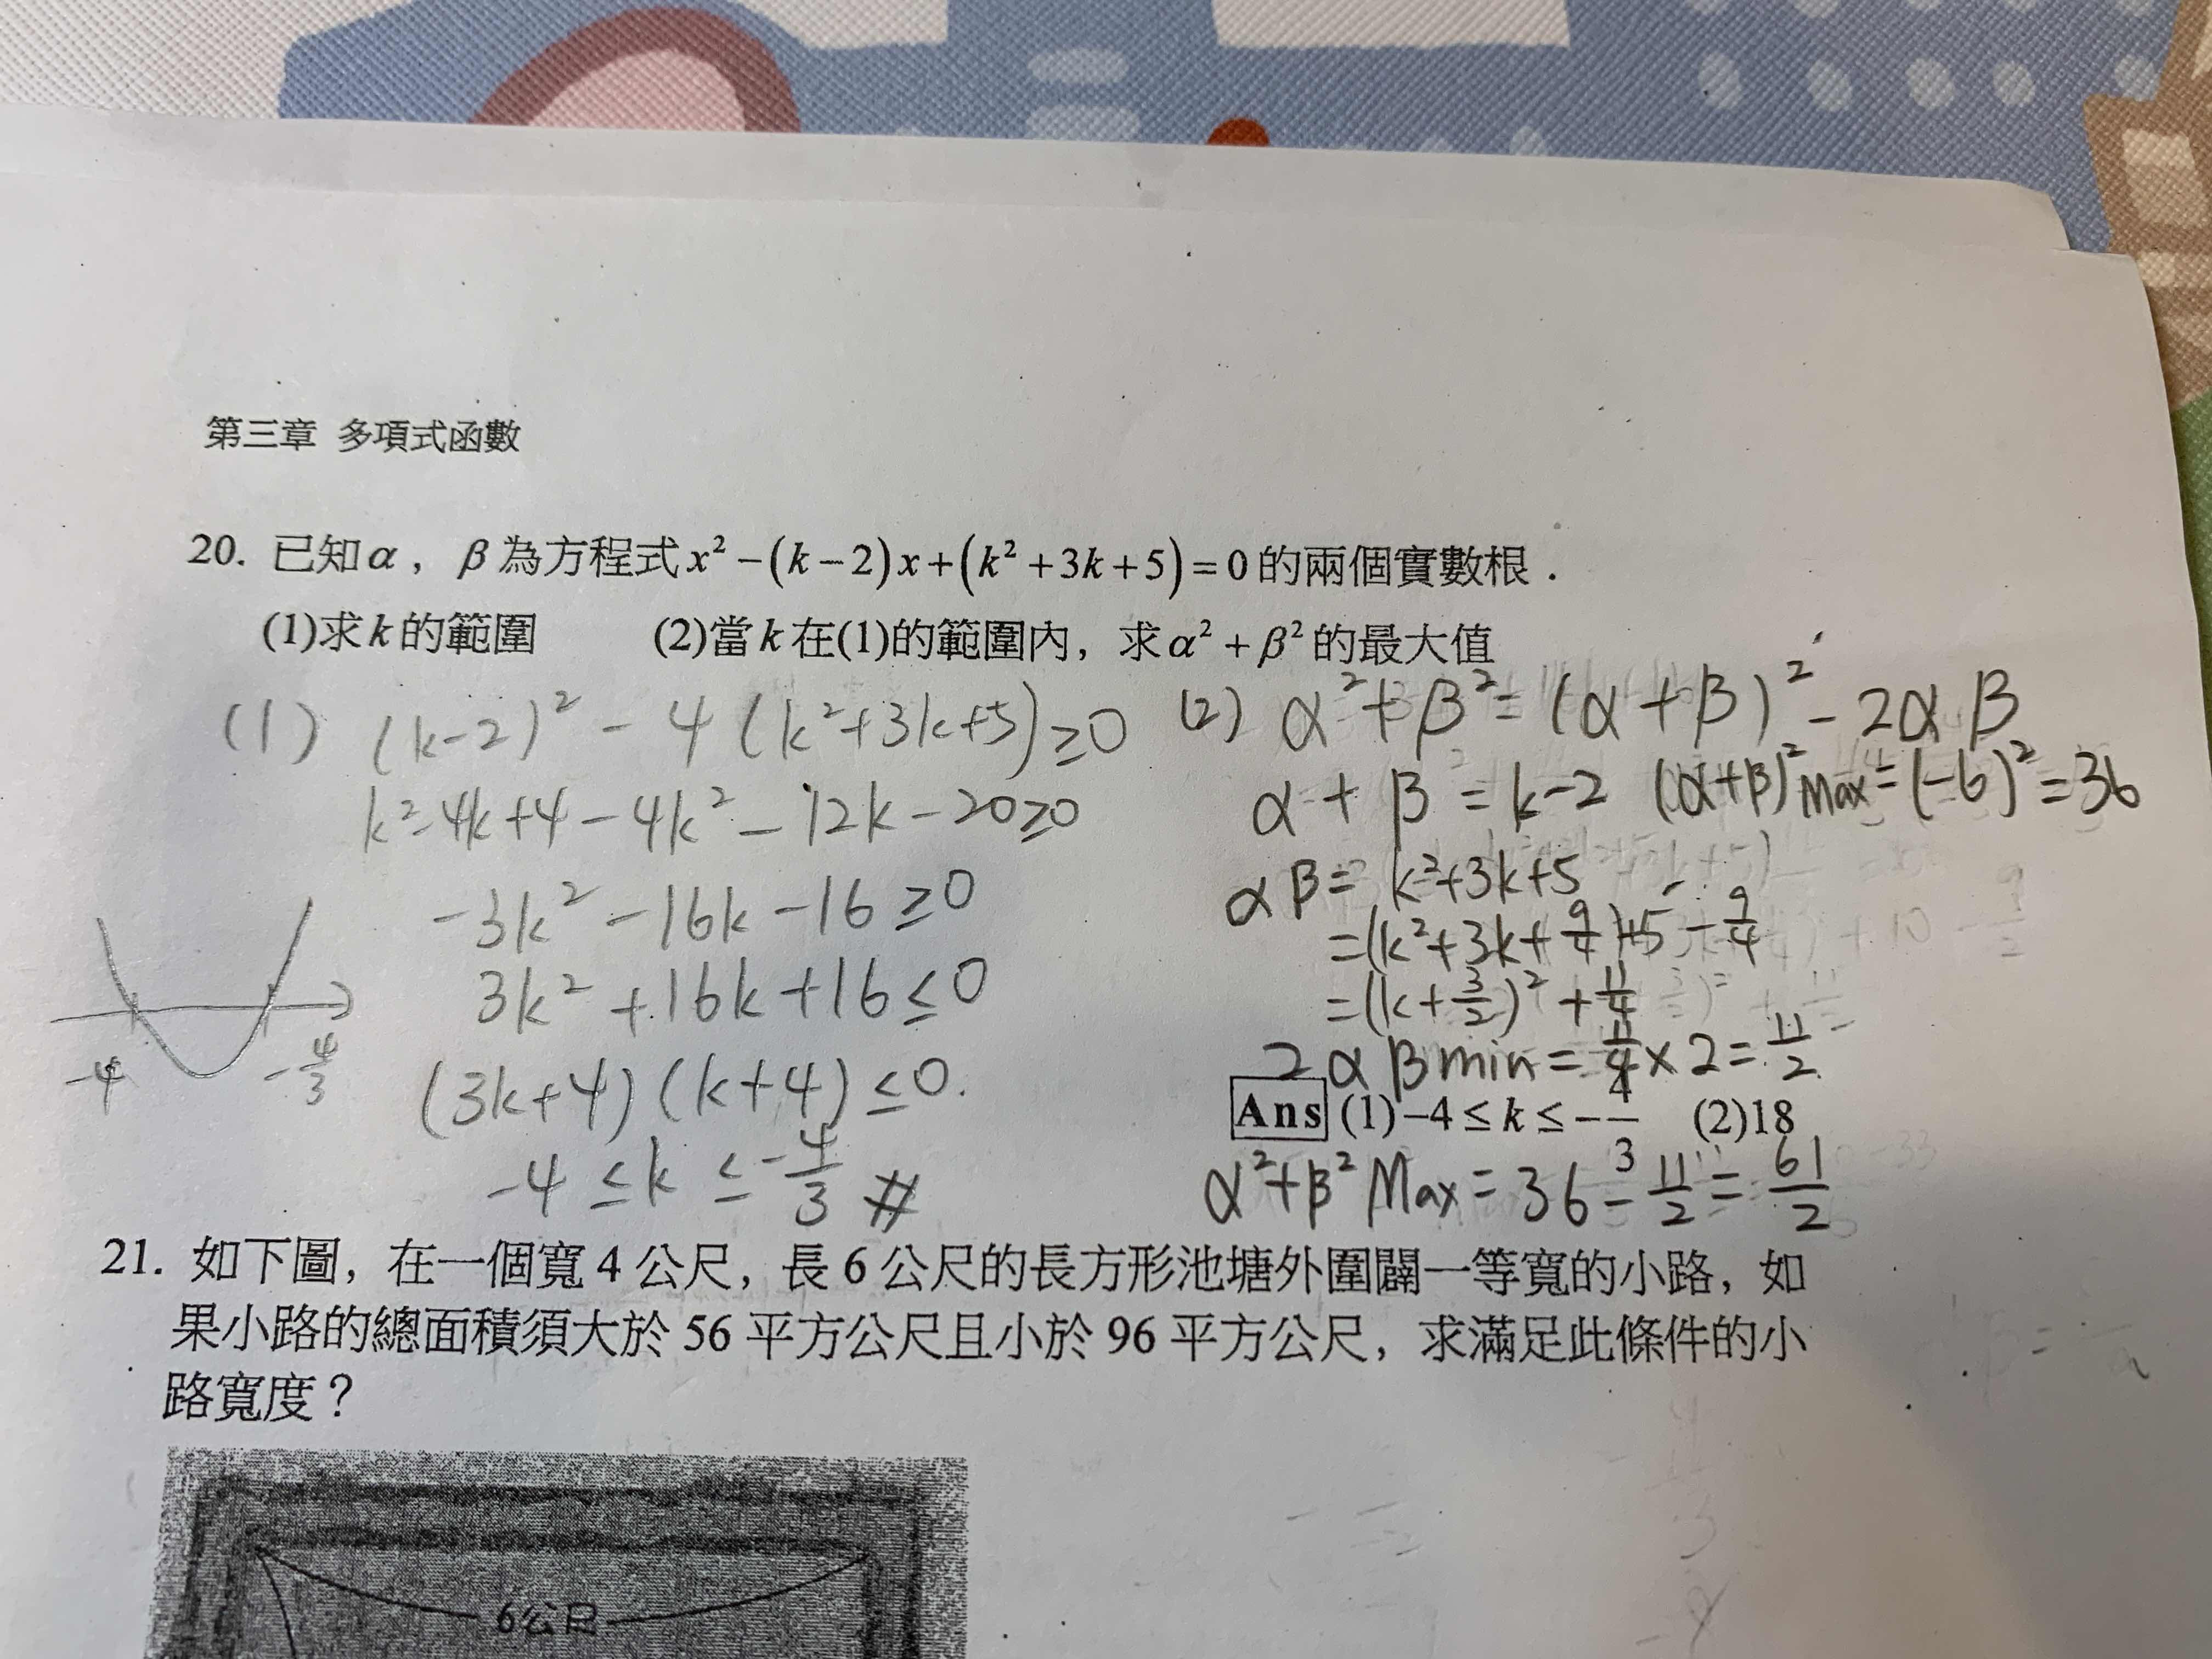 第三章 多項式函數
20. 已知α，β為方程式x²-(k-2)x+(k²+3k+5)=0的兩個實數根．
(1)求k的範圍 (2)當k在(1)的範圍內，求α²+β²的最大值
(1) (k-2)²-4(k²+3k+5)≥0
k²-4k+4-4k²-12k-20≥0
-3k²-16k-16≥0
3k²+16k+16≤0
(3k+4)(k+4)≤0.
-4≤k≤-4/3 #
-4 -4/3
(2) α²+β²=(α+β)²-2αβ
α+β=k-2 (α+β)²Max=(-6)²=36
αβ=k²+3k+5
=(k²+3k+9/4)+5-9/4
=(k+3/2)²+11/4
2αβmin=11/4×2=11/2
Ans (1)-4≤k≤-4/3 (2)18
α²+β²Max=36-11/2=61/2
21. 如下圖，在一個寬4公尺，長6公尺的長方形池塘外圍闢一等寬的小路，如
果小路的總面積須大於56平方公尺且小於96平方公尺，求滿足此條件的小
路寬度？
6公尺